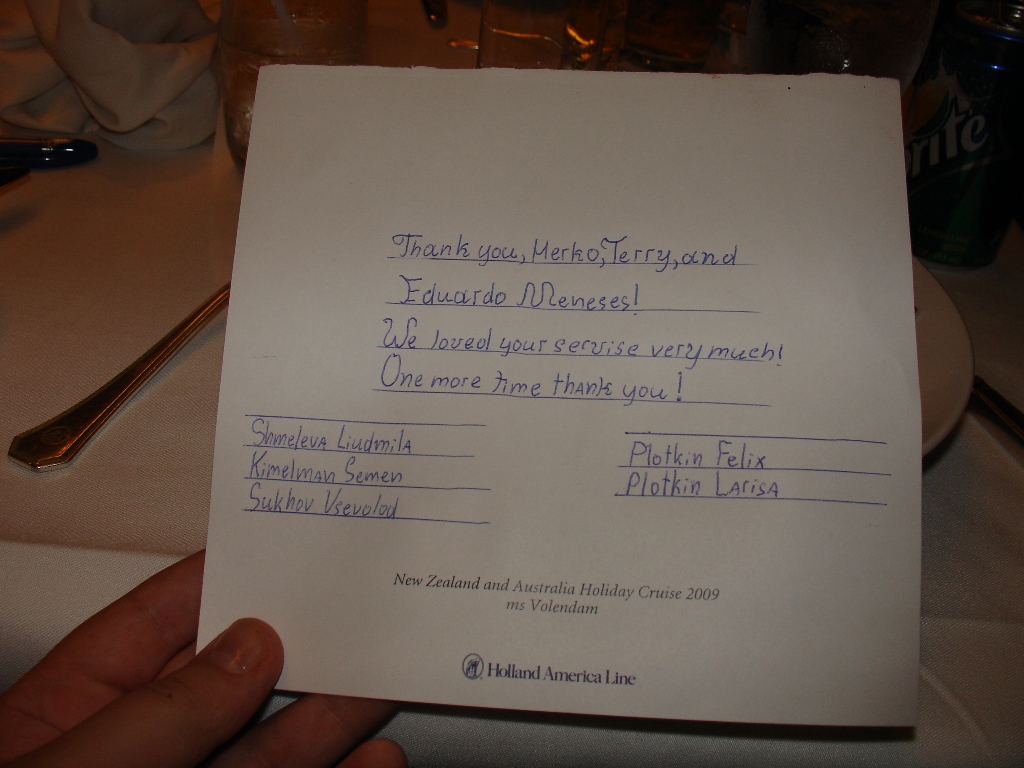 Thank you, Merko, Terry, and
Eduardo Meneses!
We loved your servise very much!
One more time thank you!
Shmeleva Liudmila
Kimelman Semen
Sukhov Vsevolod
Plotkin Felix
Plotkin Larisa
New Zealand and Australia Holiday Cruise 2009
ms Volendam
Holland America Line
rite